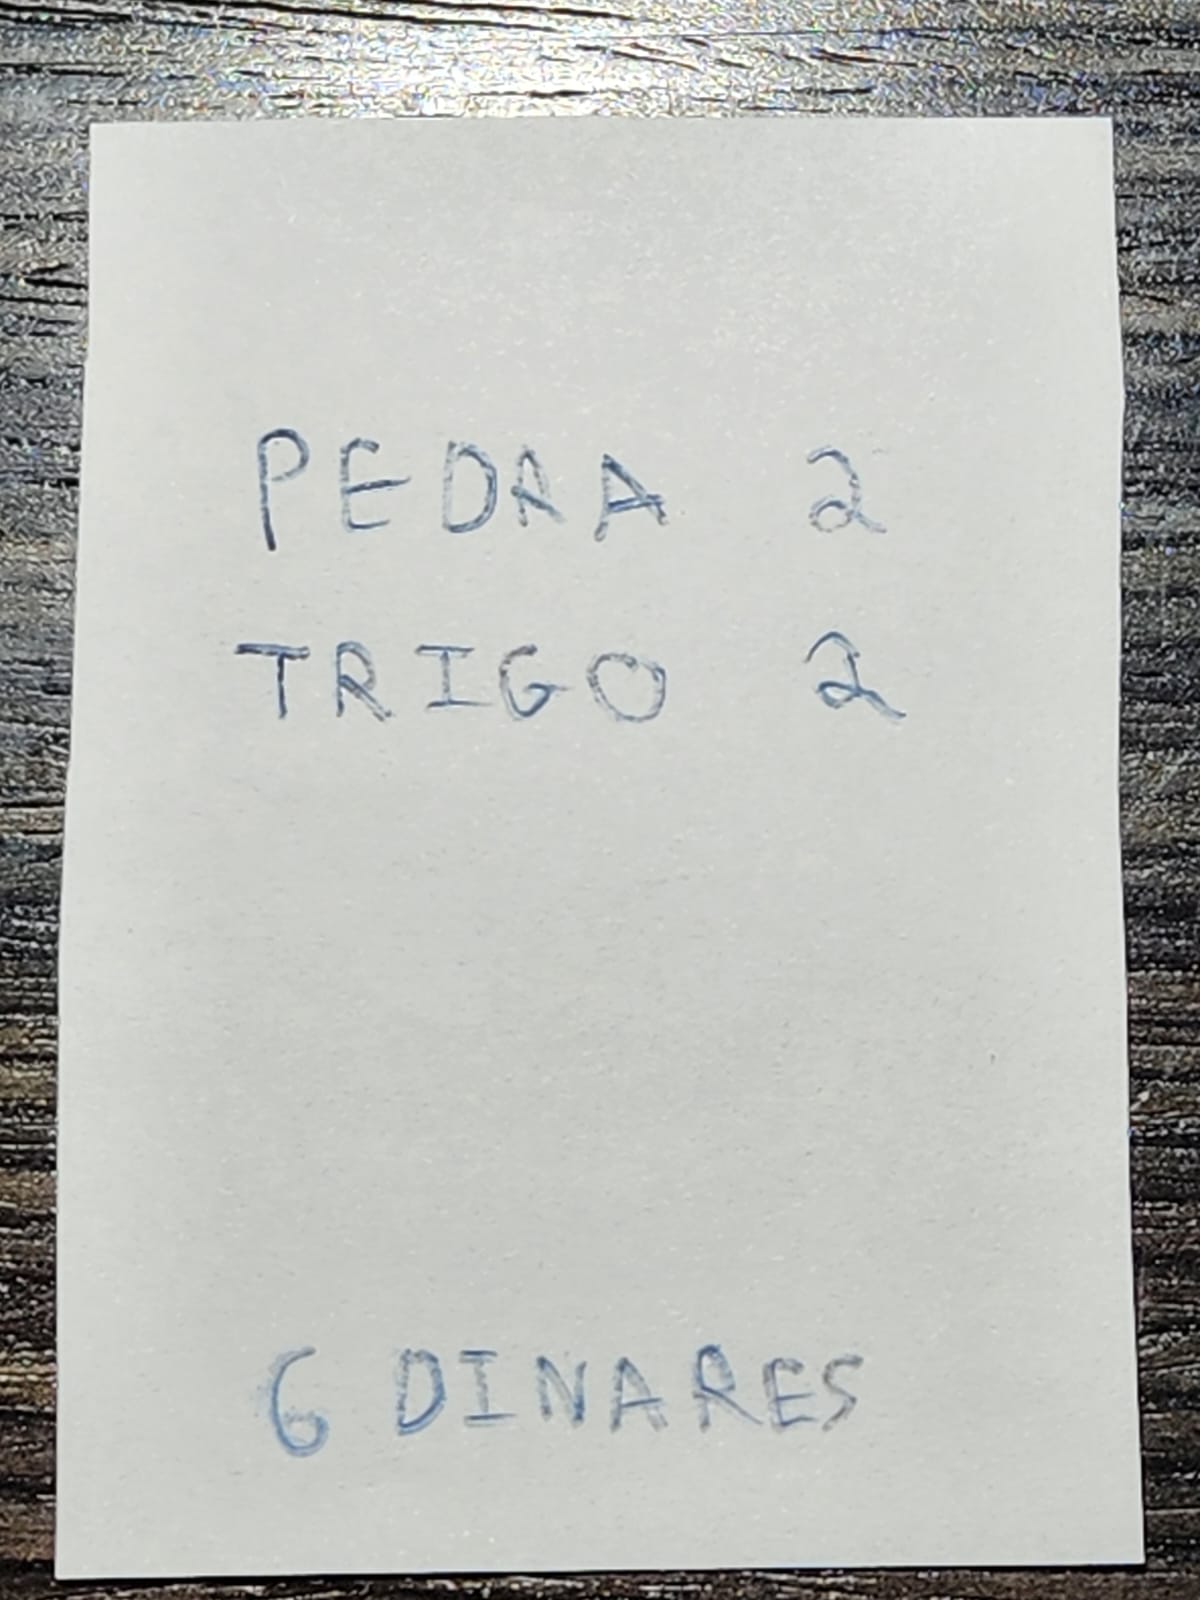 PEDRA 2
TRIGO 2
6 DINARES